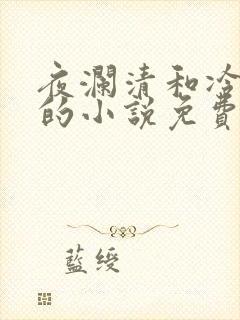 夜瀾清和冷
的小說免費
藍綬